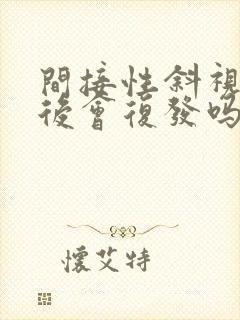 間接性斜視
後會復發嗎
懷艾特